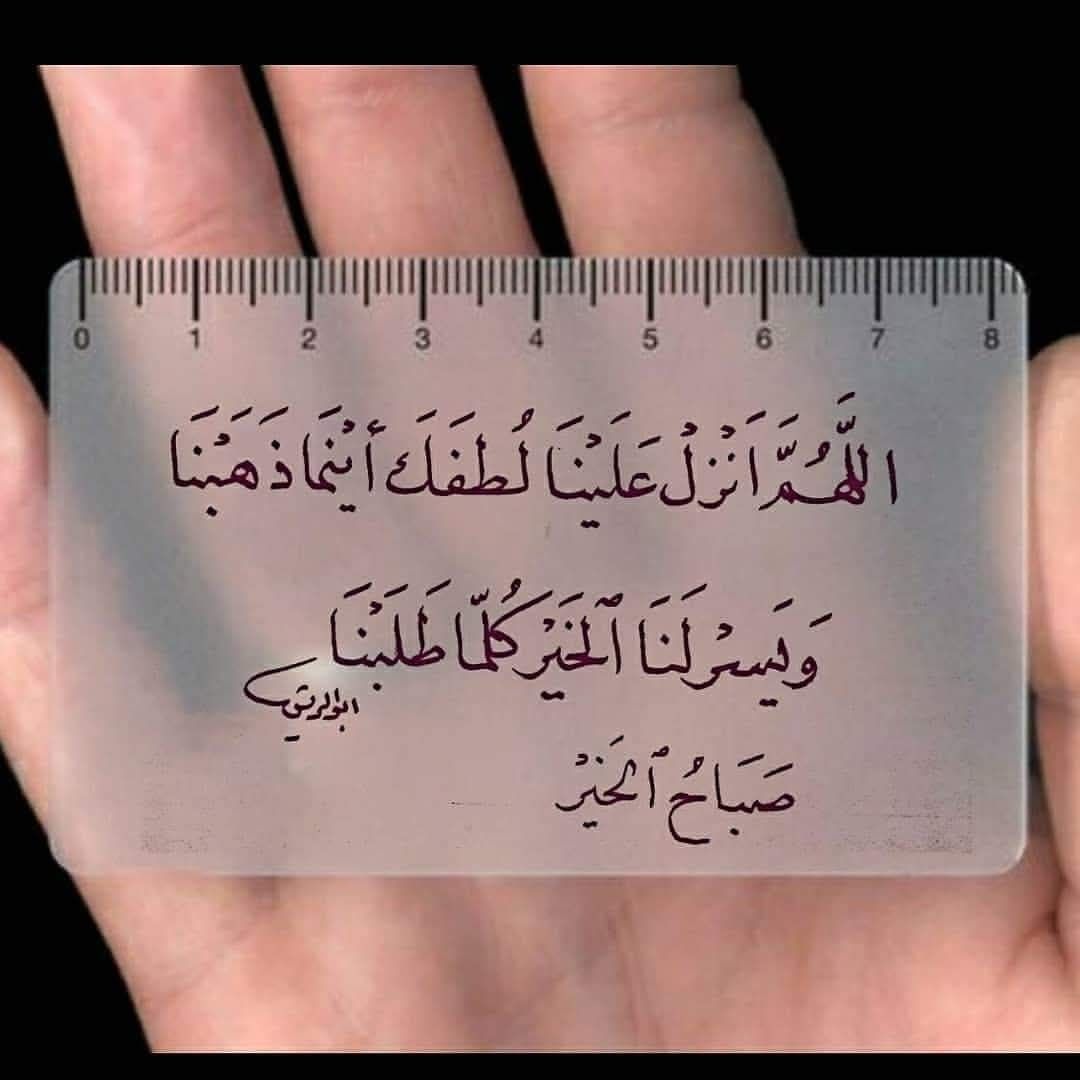 0 1 2 3 4 5 6 7 8
اللَّهُمَّ اَنْزِلْ عَلَيْنَا لُطفَكَ أَيْنَمَا ذَهَبْنَا
وَيَسِرْ لَنَا ٱلخَيْرَ كُلَّمَا طَلَبْنَا
صَبَاحُ ٱلخَيْرْ